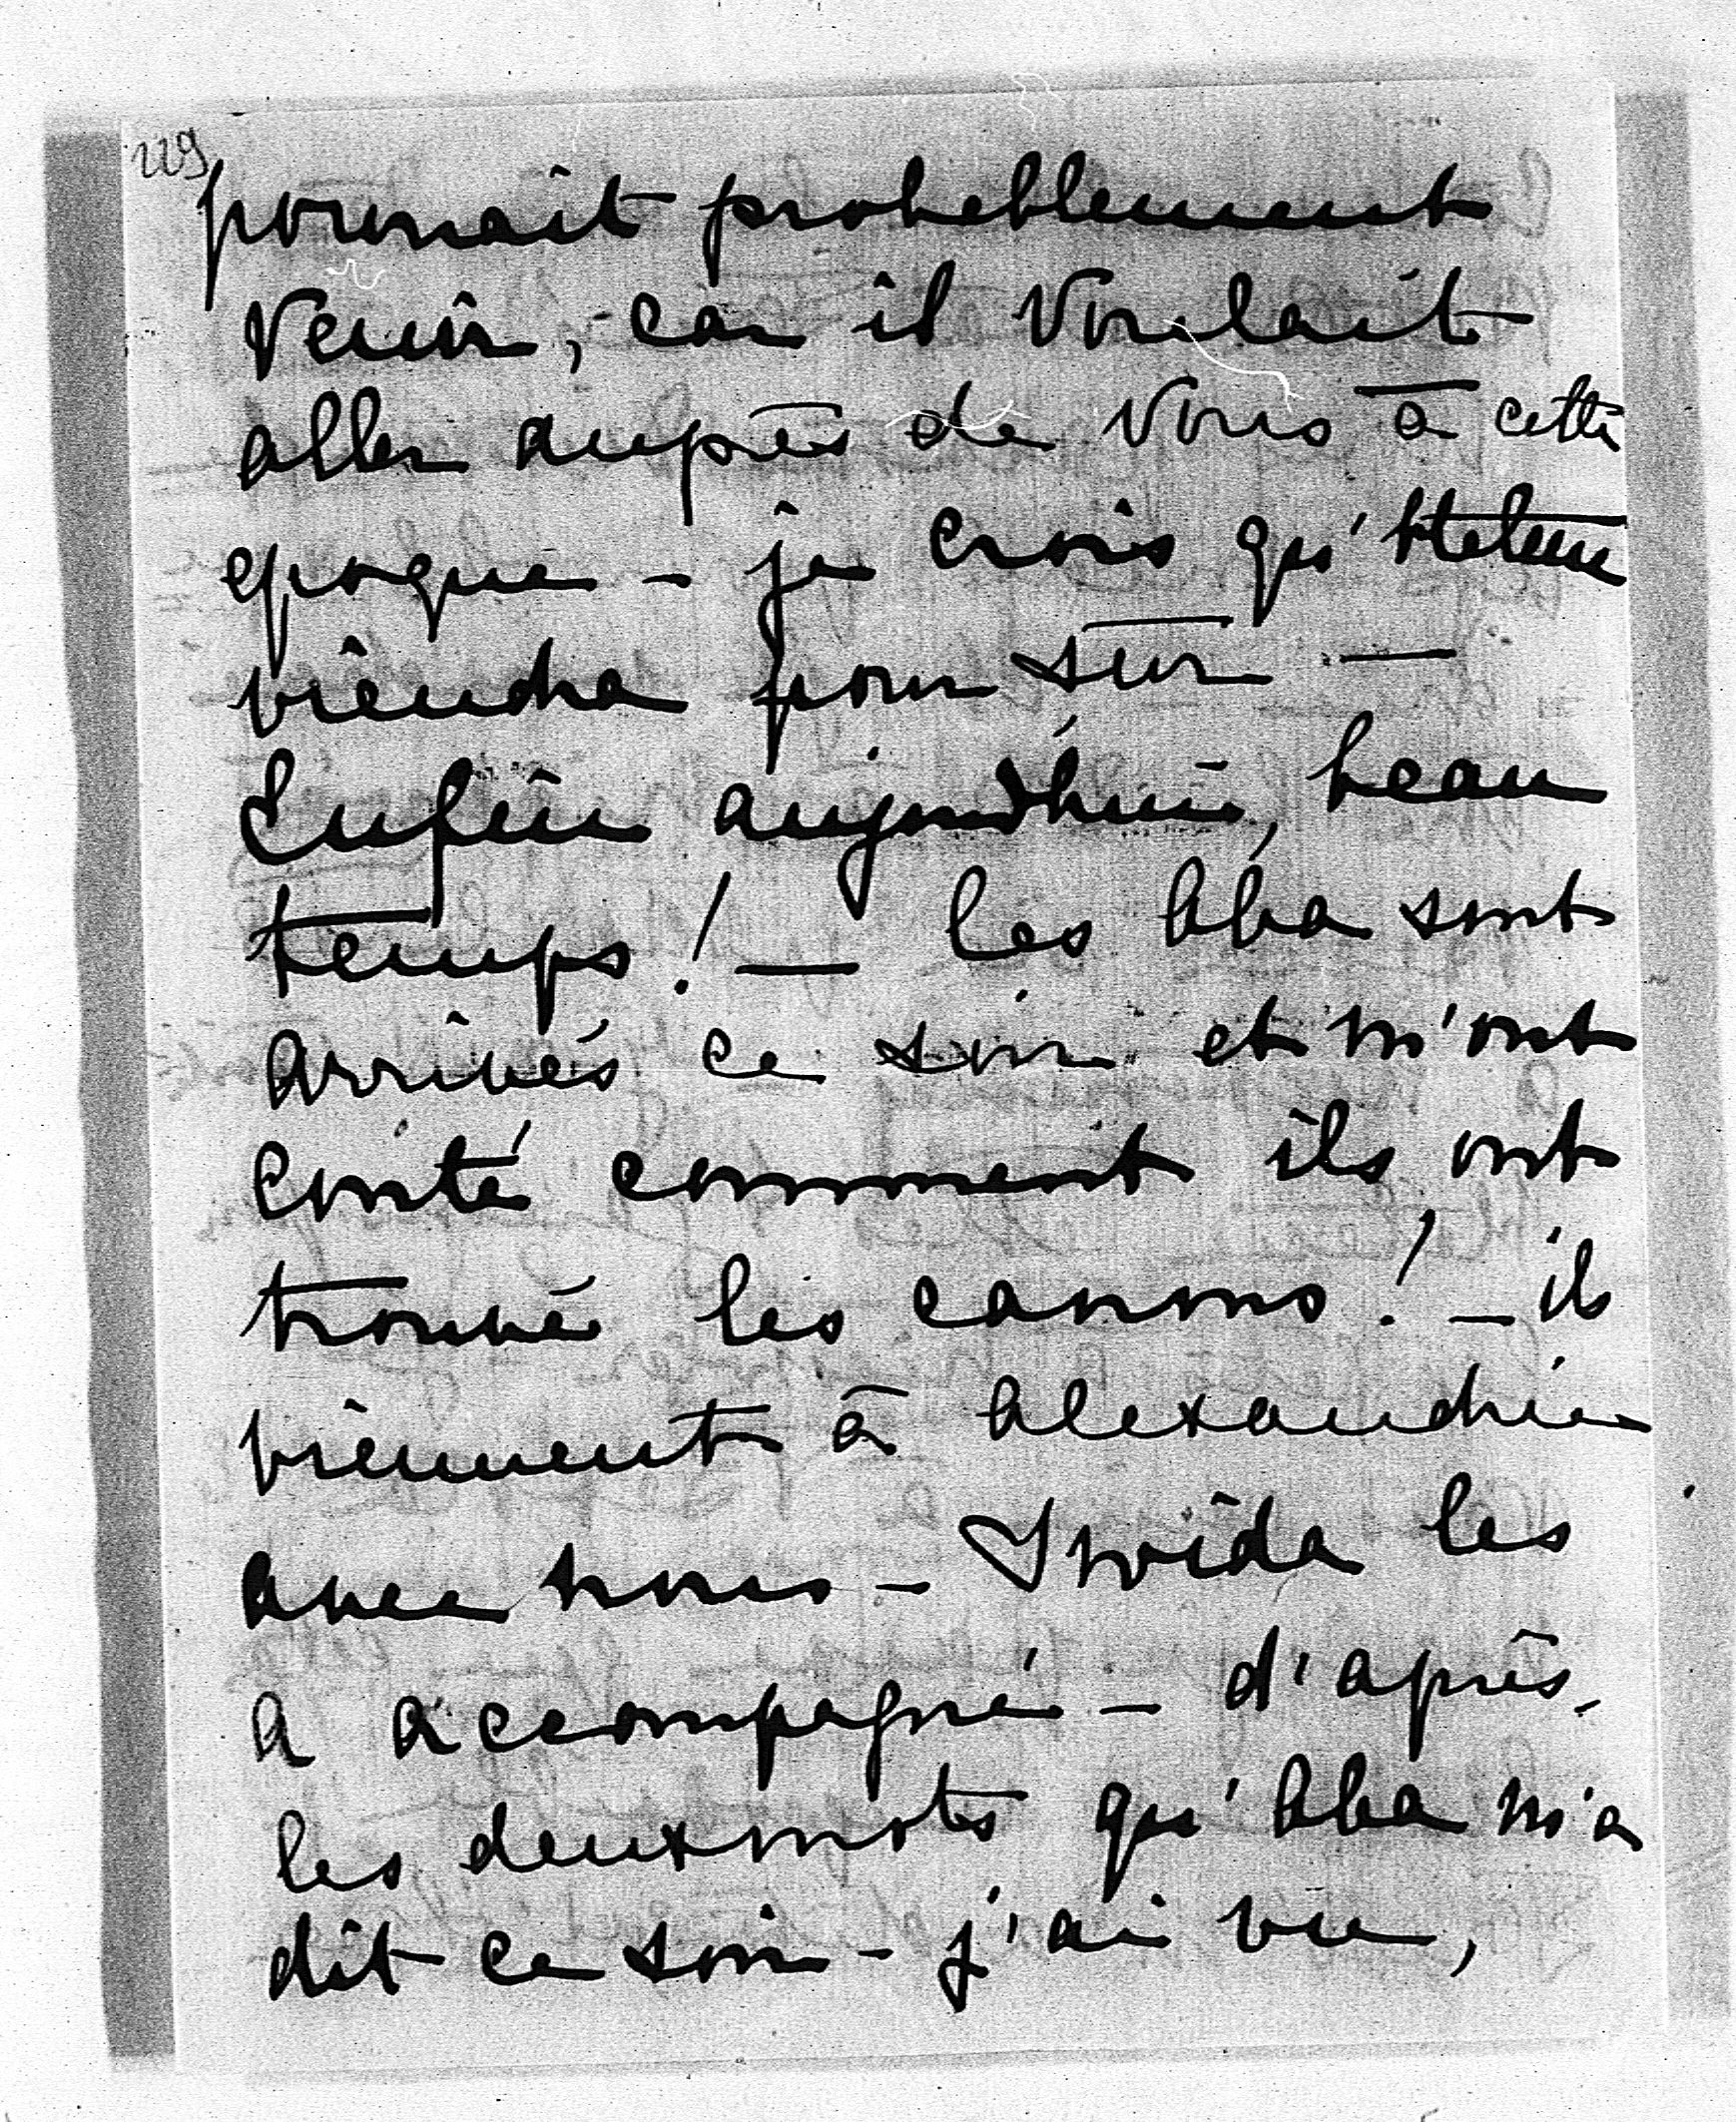 229
pourrait probablement
venir, car il voulait
aller auprès de vous à cette
epoque - je crois qu'
viendra pour sûr —
Enfin aujourd'hui, beau
temps! — les Aba sont
arrivés ce soir et m'ont
conté comment ils ont
trouvé les canons! - ils
viennent à Alexandrie
avec nous - les
a accompagné - d'après
les deux mots qu'Aba m'a
dit ce soir - j'ai vu,